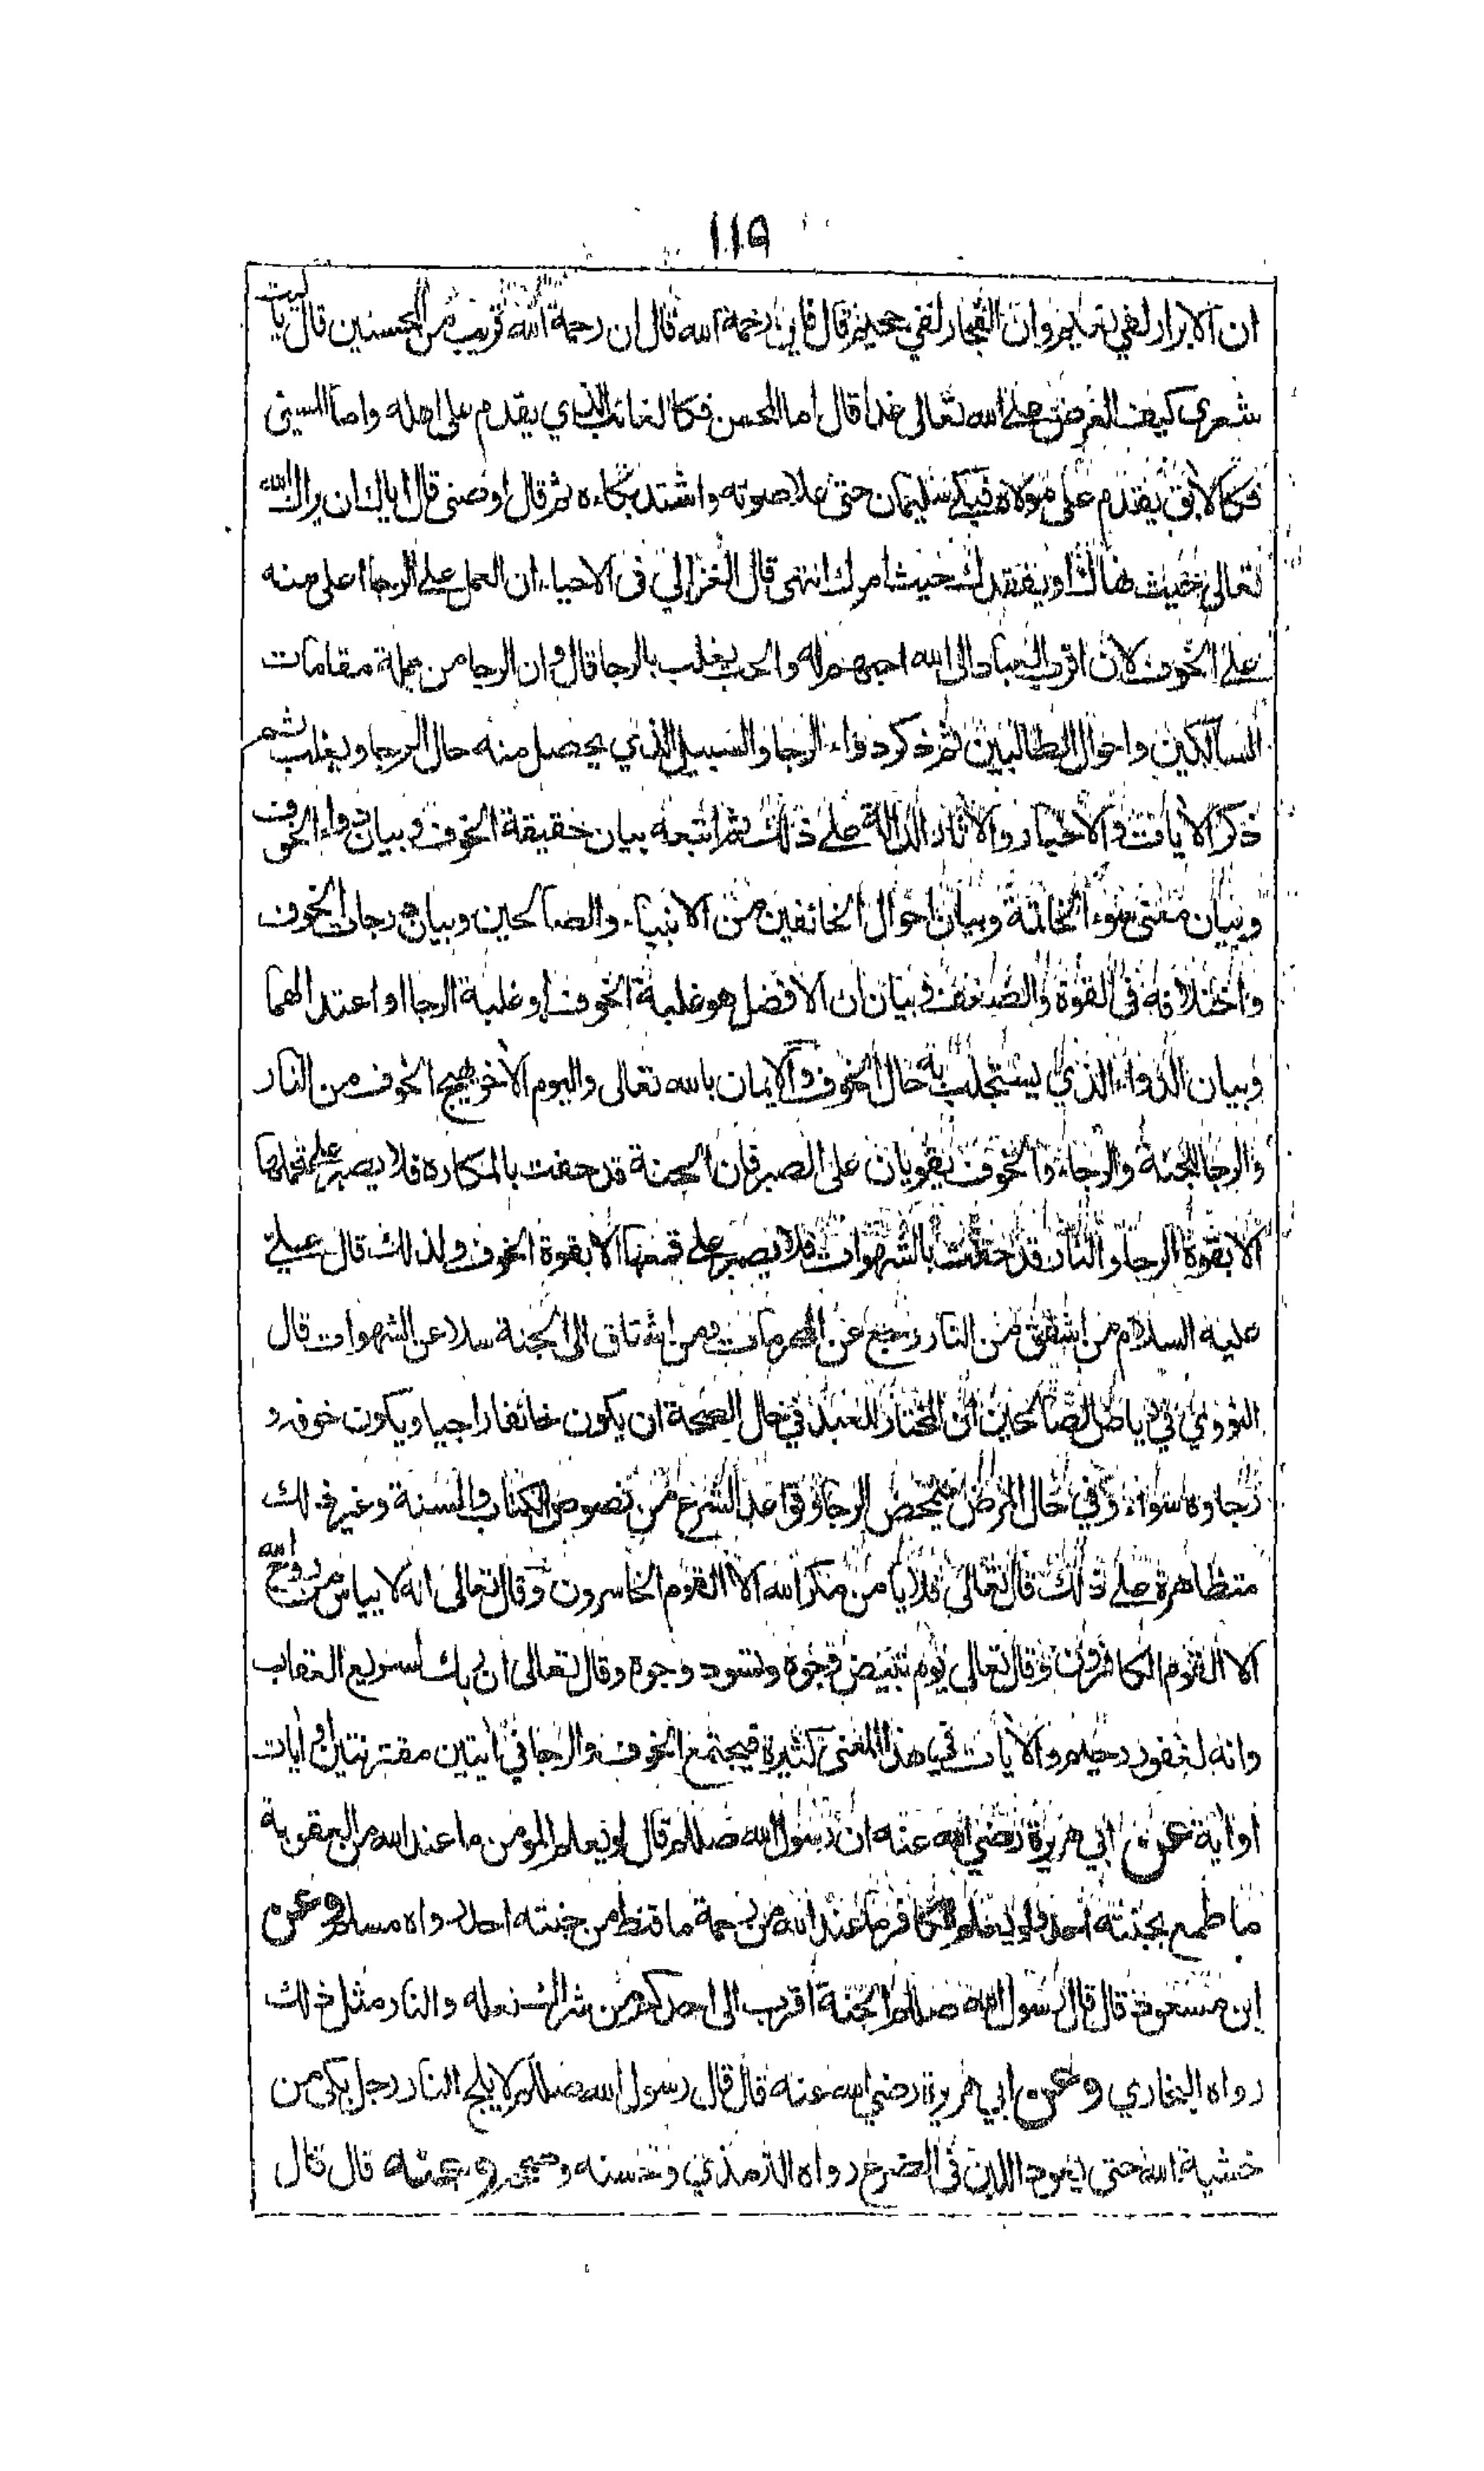 ١١٩
ان الابرار لفي نعيم وان الفجار لفي جحيم قال فاين رحمة الله قال ان رحمة الله قريب من المحسنين قال يا ليت
شعرى كيف العرض على الله تعالى غدا قال اما المحسن فكالغائب الذي يقدم على اهله واما المسيئ
فكالابق يقدم على مولاه فبكى سليمان حتى علا صوته واشتد بكاءه ثم قال اوصنى قال اياك ان يراك الله
تعالى حيث نهاك او يفتقدك حيث امرك انتهى قال الغزالي فى الاحياء ان العمل على الرجا اعلى منه
على الخوف لان اقرب العباد الى الله احبهم له والحب يغلب بالرجا قال وان الرجا من جملة مقامات
السالكين واحوال الطالبين ثم ذكر دواء الرجا والسبيل الذي يحصل منه حال الرجا ويغلب ثم
ذكر الأيات والاخبار والاثار الدالة على ذلك ثم اتبعه بيان حقيقة الخوف وبيان دواء الخوف
وبيان معنى سوء الخاتمة وبيان احوال الخائفين من الانبياء والصالحين وبيان درجات الخوف
واختلافه فى القوة والضعف وبيان ان الافضل هو غلبة الخوف او غلبة الرجا او اعتدالهما
وبيان الدواء الذي يستجلب به حال الخوف والايمان بالله تعالى واليوم الأخر يهيج الخوف من النار
والرجا للجنة والرجاء والخوف يقويان على الصبر فان الجنة قد حفت بالمكاره فلا يصبر على تحملها
الا بقوة الرجا والنار قد حفت بالشهوات فلا يصبر على قمعها الا بقوة الخوف ولذلك قال على
عليه السلام من اشفق من النار رجع عن المحرمات ومن اشتاق الى الجنة سلا عن الشهوات قال
النووي في رياض الصالحين ان المختار للعبد في حال الصحة ان يكون خائفا راجيا ويكون خوفه و
رجاوه سواء وفي حال المرض يمحض الرجا وقواعد الشرع من نصوص الكتاب والسنة وغير ذلك
متظاهرة على ذلك قال تعالى فلا يأمن مكر الله الا القوم الخاسرون وقال تعالى انه لا ييأس من روح الله
الا القوم الكافرون وقال تعالى يوم تبيض وجوه وتسود وجوه وقال تعالى ان ربك لسريع العقاب
وانه لغفور رحيم والأيات في هذا المعنى كثيرة فيجتمع الخوف والرجا في أيتين مقترنتين او أيات
او أية عن ابي هريرة رضي الله عنه ان رسول الله صللم قال لو يعلم المومن ما عند الله من العقوبة
ما طمع بجنته احد ولو يعلم الكافر ما عند الله من رحمة ما قنط من جنته احد رواه مسلم وعن
ابن مسعود قال قال رسول الله صللم الجنة اقرب الى احدكم من شراك نعله والنار مثل ذلك
رواه البخاري وعن ابي هريرة رضي الله عنه قال قال رسول الله صللم لا يلج النار رجل بكى من
خشية الله حتى يعود اللبن فى الضرع رواه الترمذي وحسنه وصححه وعنه قال قال